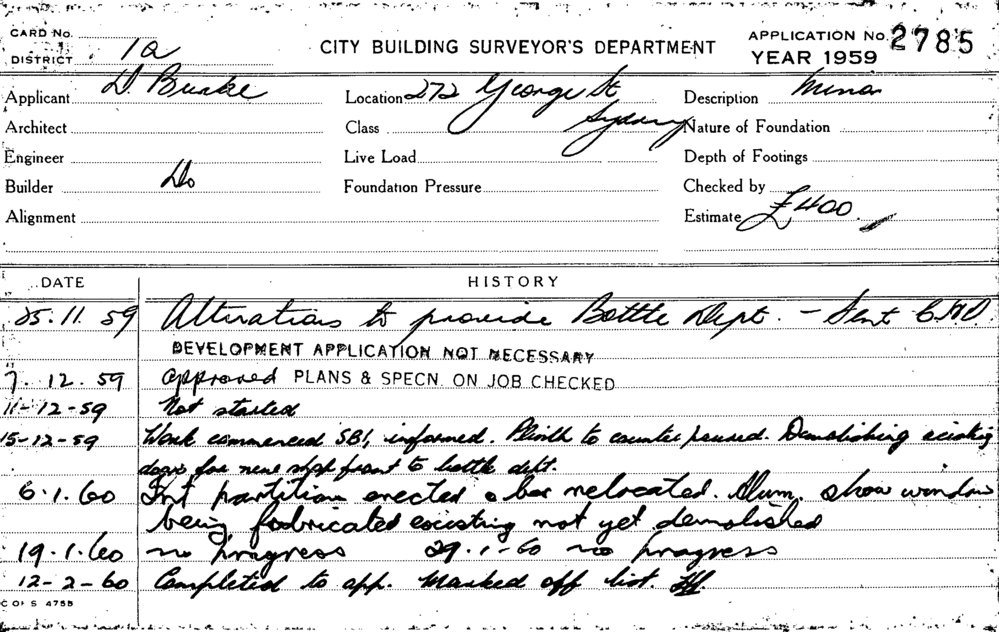 CARD No.
CITY BUILDING SURVEYOR'S DEPARTMENT
APPLICATION No. 2785
DISTRICT 1a
YEAR 1959
Applicant D. Burke
Location 272 George St Sydney
Description Minor
Architect
Class
Nature of Foundation
Engineer
Live Load
Depth of Footings
Builder Do
Foundation Pressure
Checked by
Alignment
Estimate £400
DATE HISTORY
25.11.59 Alterations to provide Bottle Dept. - Sent
DEVELOPMENT APPLICATION NOT NECESSARY
7.12.59 approved PLANS & SPECN. ON JOB CHECKED
11-12-59 Not started
15-12-59 Work commenced SBI, informed. Plinth to counter poured. Demolishing existing
doors for new shop front to bottle dept.
6.1.60 Int partition erected & bar relocated. Alum. show window
being fabricated existing not yet demolished
19.1.60 no progress 29.1-60 no progress
12-2-60 Completed to app. Marked off list.
C OF S 4755